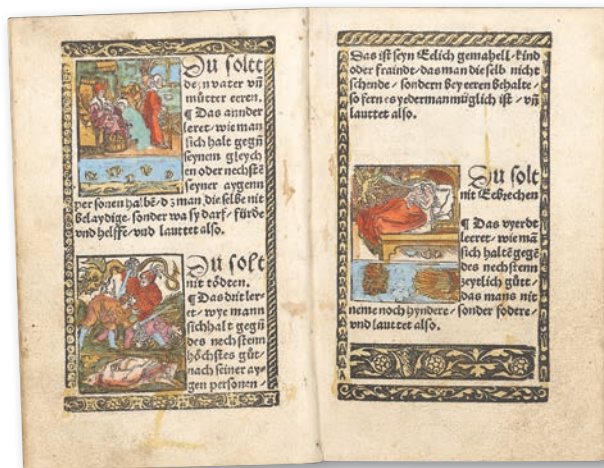 Du soltt
dein vater vñ
mütter eeren.
¶ Das annder
leret, wie man
sich halt gegñ
seynen gleych
en oder nechstẽ
seyner aygenn
personen halbẽ, dz man, die selbe nit
belaydige, sonder wa sy darf, fürde
vnd helffe, vnd lauttet also.
Du solt
nit tödten.
¶ Das drit ler-
et, wye mann
sich halt gegñ
des nechstenn
höchstes güt,
nach seiner ay-
gen personen,
Das ist seyn Eelich gemahell, kind
oder fraindt, das man die selb nicht
schende, sondern bey eeren behalte,
so fern es yederman müglich ist, vñ
lauttet also.
Du solt
nit Eebrechen
¶ Das vyerdt
leeret, wie mã
sich haltẽ gegẽ
des nechstenn
zeytlich gütt,
das mans nit
neme noch hyndere, sonder fodere,
vnd lauttet also.